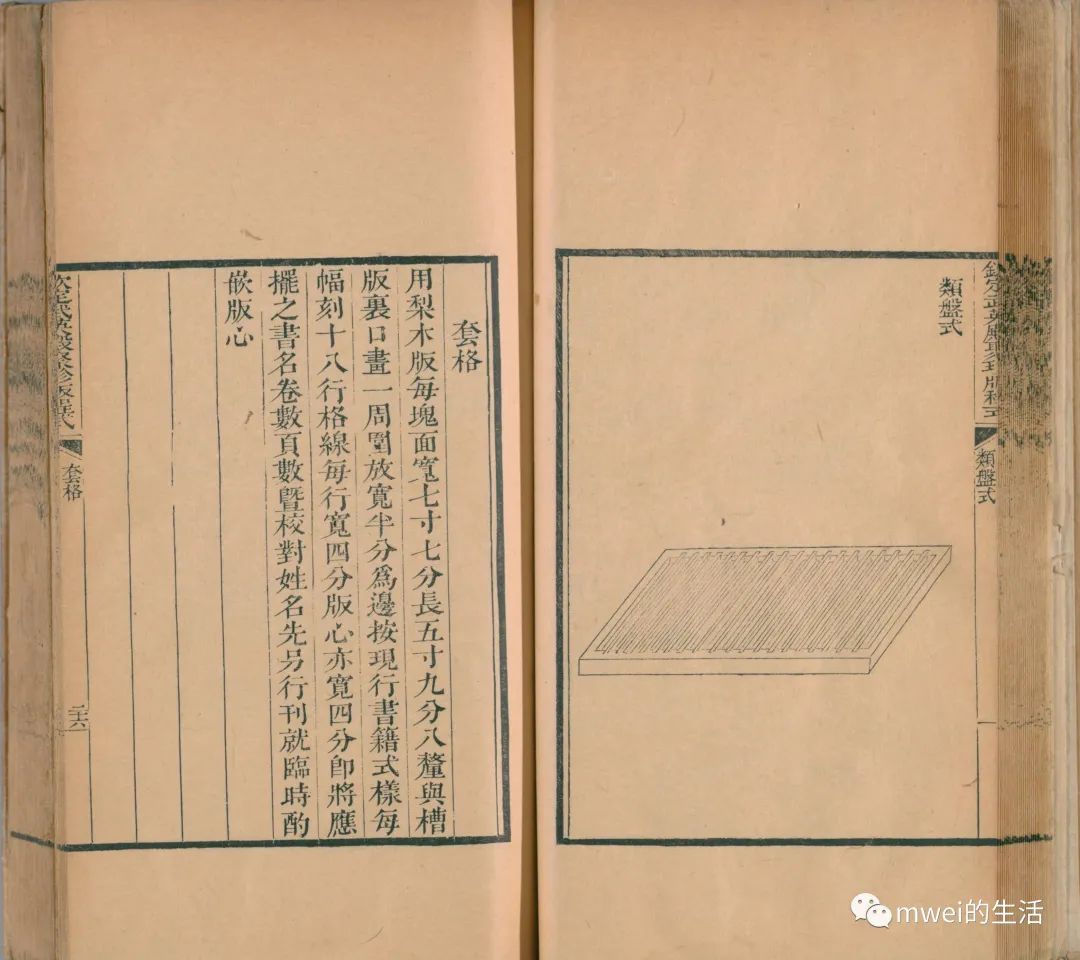 欽定武英殿聚珍版程式
類盤式
類盤式
套格
用梨木版每塊面寬七寸七分長五寸九分八釐與槽
版裏口畫一周圍放寬半分爲邊按現行書籍式樣每
幅刻十八行格線每行寬四分版心亦寬四分卽將應
擺之書名卷數頁數曁校對姓名先另行刊就臨時酌
嵌版心
欽定武英殿聚珍版程式
套格
二十六
mwei的生活